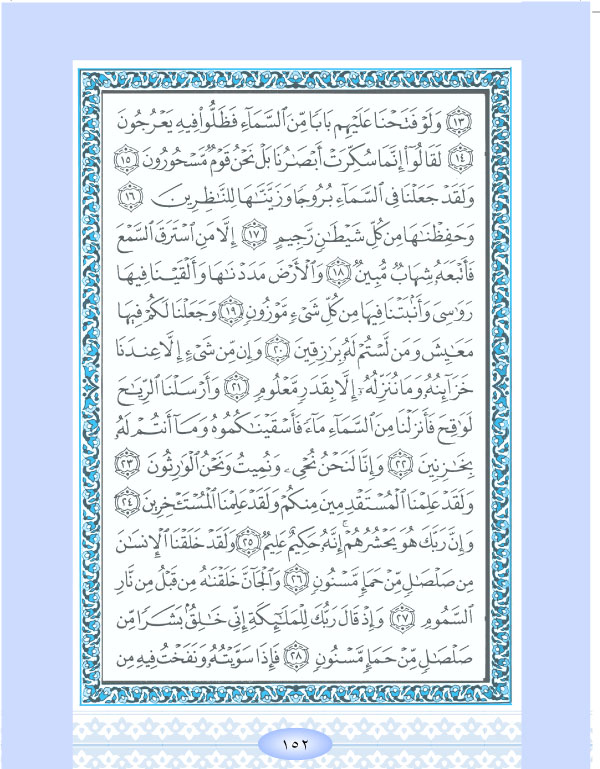 ﴿١٣﴾ وَلَوْ فَتَحْنَا عَلَيْهِم بَابًا مِّنَ ٱلسَّمَآءِ فَظَلُّوا۟ فِيهِ يَعْرُجُونَ
﴿١٤﴾ لَقَالُوٓا۟ إِنَّمَا سُكِّرَتْ أَبْصَـٰرُنَا بَلْ نَحْنُ قَوْمٌ مَّسْحُورُونَ ﴿١٥﴾
وَلَقَدْ جَعَلْنَا فِى ٱلسَّمَآءِ بُرُوجًا وَزَيَّنَّـٰهَا لِلنَّـٰظِرِينَ ﴿١٦﴾
وَحَفِظْنَـٰهَا مِن كُلِّ شَيْطَـٰنٍ رَّجِيمٍ ﴿١٧﴾ إِلَّا مَنِ ٱسْتَرَقَ ٱلسَّمْعَ
فَأَتْبَعَهُۥ شِهَابٌ مُّبِينٌ ﴿١٨﴾ وَٱلْأَرْضَ مَدَدْنَـٰهَا وَأَلْقَيْنَا فِيهَا
رَوَٰسِىَ وَأَنۢبَتْنَا فِيهَا مِن كُلِّ شَىْءٍ مَّوْزُونٍ ﴿١٩﴾ وَجَعَلْنَا لَكُمْ فِيهَا
مَعَـٰيِشَ وَمَن لَّسْتُمْ لَهُۥ بِرَٰزِقِينَ ﴿٢٠﴾ وَإِن مِّن شَىْءٍ إِلَّا عِندَنَا
خَزَآئِنُهُۥ وَمَا نُنَزِّلُهُۥٓ إِلَّا بِقَدَرٍ مَّعْلُومٍ ﴿٢١﴾ وَأَرْسَلْنَا ٱلرِّيَـٰحَ
لَوَٰقِحَ فَأَنزَلْنَا مِنَ ٱلسَّمَآءِ مَآءً فَأَسْقَيْنَـٰكُمُوهُ وَمَآ أَنتُمْ لَهُۥ
بِخَـٰزِنِينَ ﴿٢٢﴾ وَإِنَّا لَنَحْنُ نُحْىِۦ وَنُمِيتُ وَنَحْنُ ٱلْوَٰرِثُونَ ﴿٢٣﴾
وَلَقَدْ عَلِمْنَا ٱلْمُسْتَقْدِمِينَ مِنكُمْ وَلَقَدْ عَلِمْنَا ٱلْمُسْتَـْٔخِرِينَ ﴿٢٤﴾
وَإِنَّ رَبَّكَ هُوَ يَحْشُرُهُمْ ۚ إِنَّهُۥ حَكِيمٌ عَلِيمٌ ﴿٢٥﴾ وَلَقَدْ خَلَقْنَا ٱلْإِنسَـٰنَ
مِن صَلْصَـٰلٍ مِّنْ حَمَإٍ مَّسْنُونٍ ﴿٢٦﴾ وَٱلْجَآنَّ خَلَقْنَـٰهُ مِن قَبْلُ مِن نَّارِ
ٱلسَّمُومِ ﴿٢٧﴾ وَإِذْ قَالَ رَبُّكَ لِلْمَلَـٰٓئِكَةِ إِنِّى خَـٰلِقٌۢ بَشَرًا مِّن
صَلْصَـٰلٍ مِّنْ حَمَإٍ مَّسْنُونٍ ﴿٢٨﴾ فَإِذَا سَوَّيْتُهُۥ وَنَفَخْتُ فِيهِ مِن
١٥٢